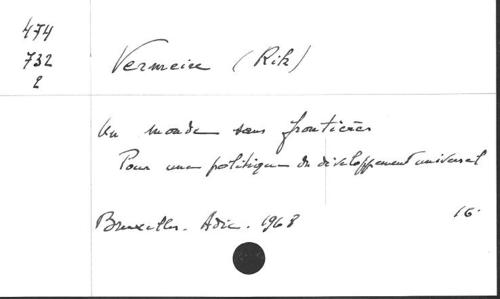 474
732
2
Vermeire (Rik)
Un monde sans frontières
Pour une politique du développement universel
Bruxelles. Adic. 1968
16.